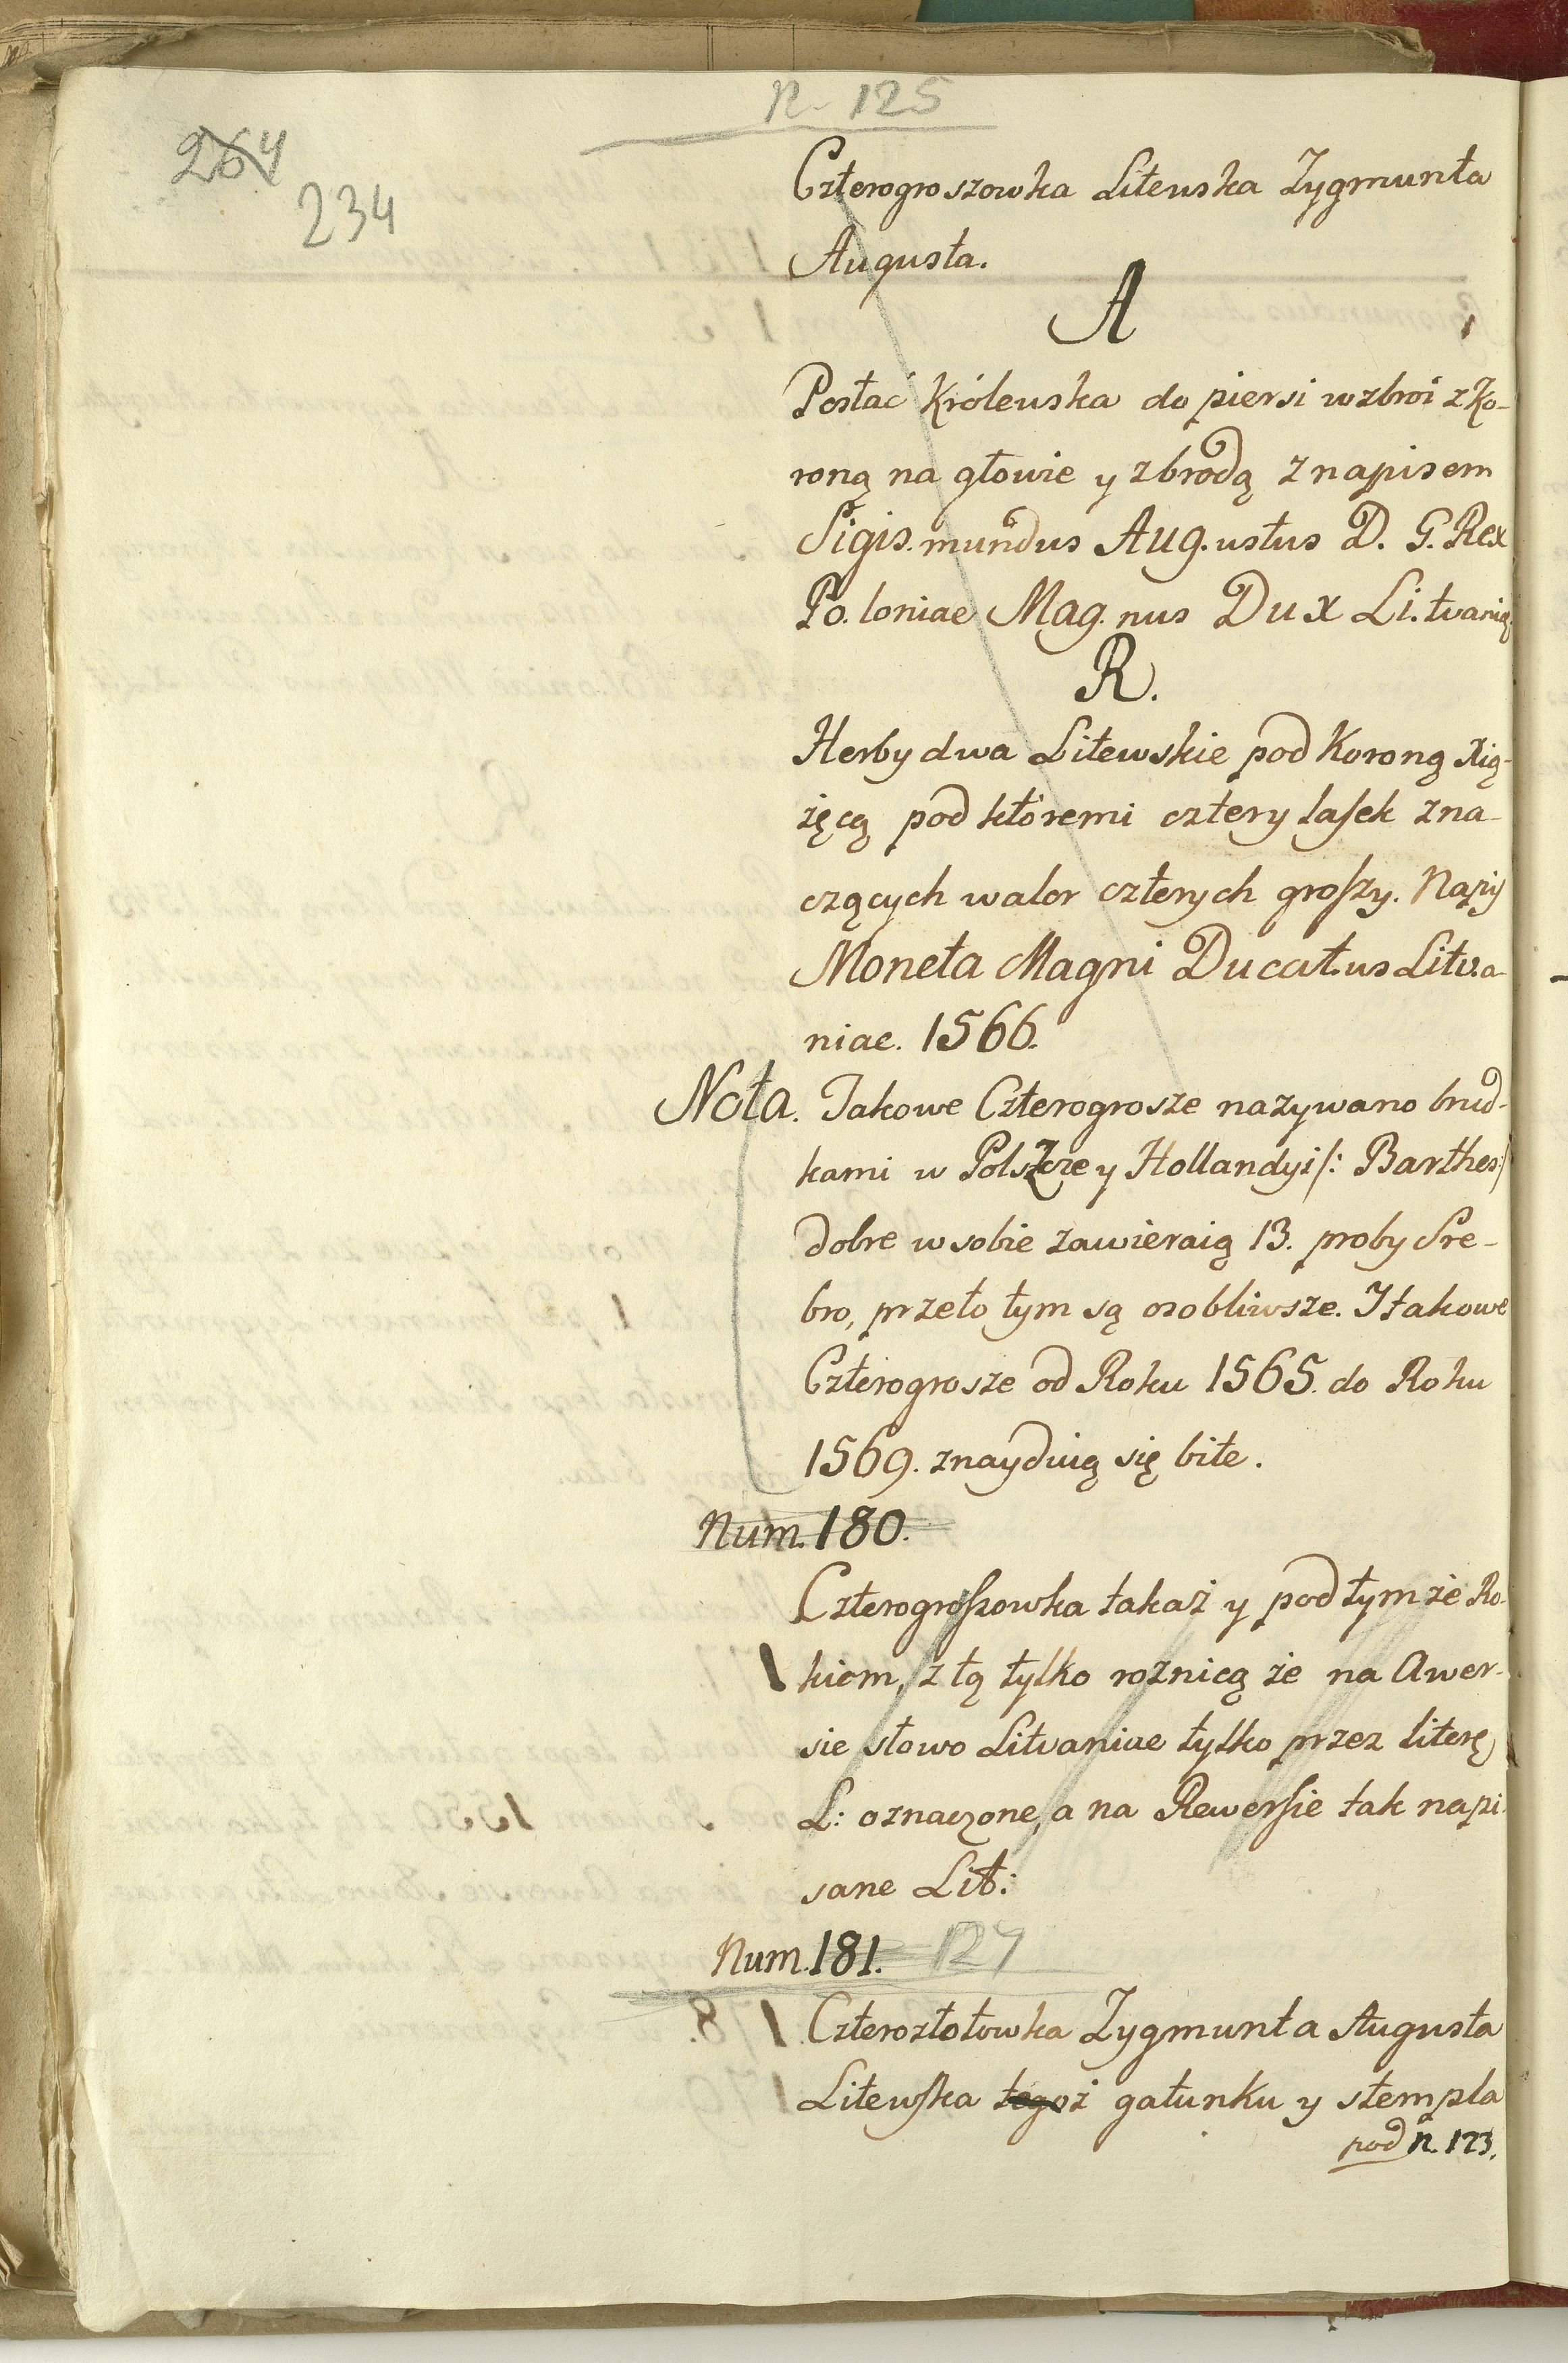 n. 125
264
234
Czterogroszowka Litewska Zygmunta
Augusta.
A
Postać Królewska do piersi w zbroi z Ko-
roną na głowie y z brodą z napisem
Sigis.mundus Aug.ustus D. G. Rex
Po.loniae Mag.nus Dux Li.tvaniae
R.
Herby dwa Litewskie pod Koroną Xią-
żęcą pod któremi cztery lasek zna-
czących walor czterych groszy. Napis
Moneta Magni Ducat.us Litv.a-
niae. 1566.
Nota. Takowe Czterogrosze nazywano brud-
kami w Polszcze y Hollandyi /: Barthes:/
dobre w sobie zawieraią 13. proby Sre-
bro, przeto tym są osobliwsze. I takowe
Czterogrosze od Roku 1565. do Roku
1569. znayduią się bite.
Num. 180.
Czterogroszowka takaż y pod tymże Ro-
kiem, z tą tylko roznicą że na Awer-
sie słowo Litvaniae tylko przez literę
L: oznaczone, a na Rewersie tak napi-
sane Lit:
Num. 181. 127
Czterozłotowka Zygmunta Augusta
Litewska tegoż gatunku y stempla
pod n. 123.